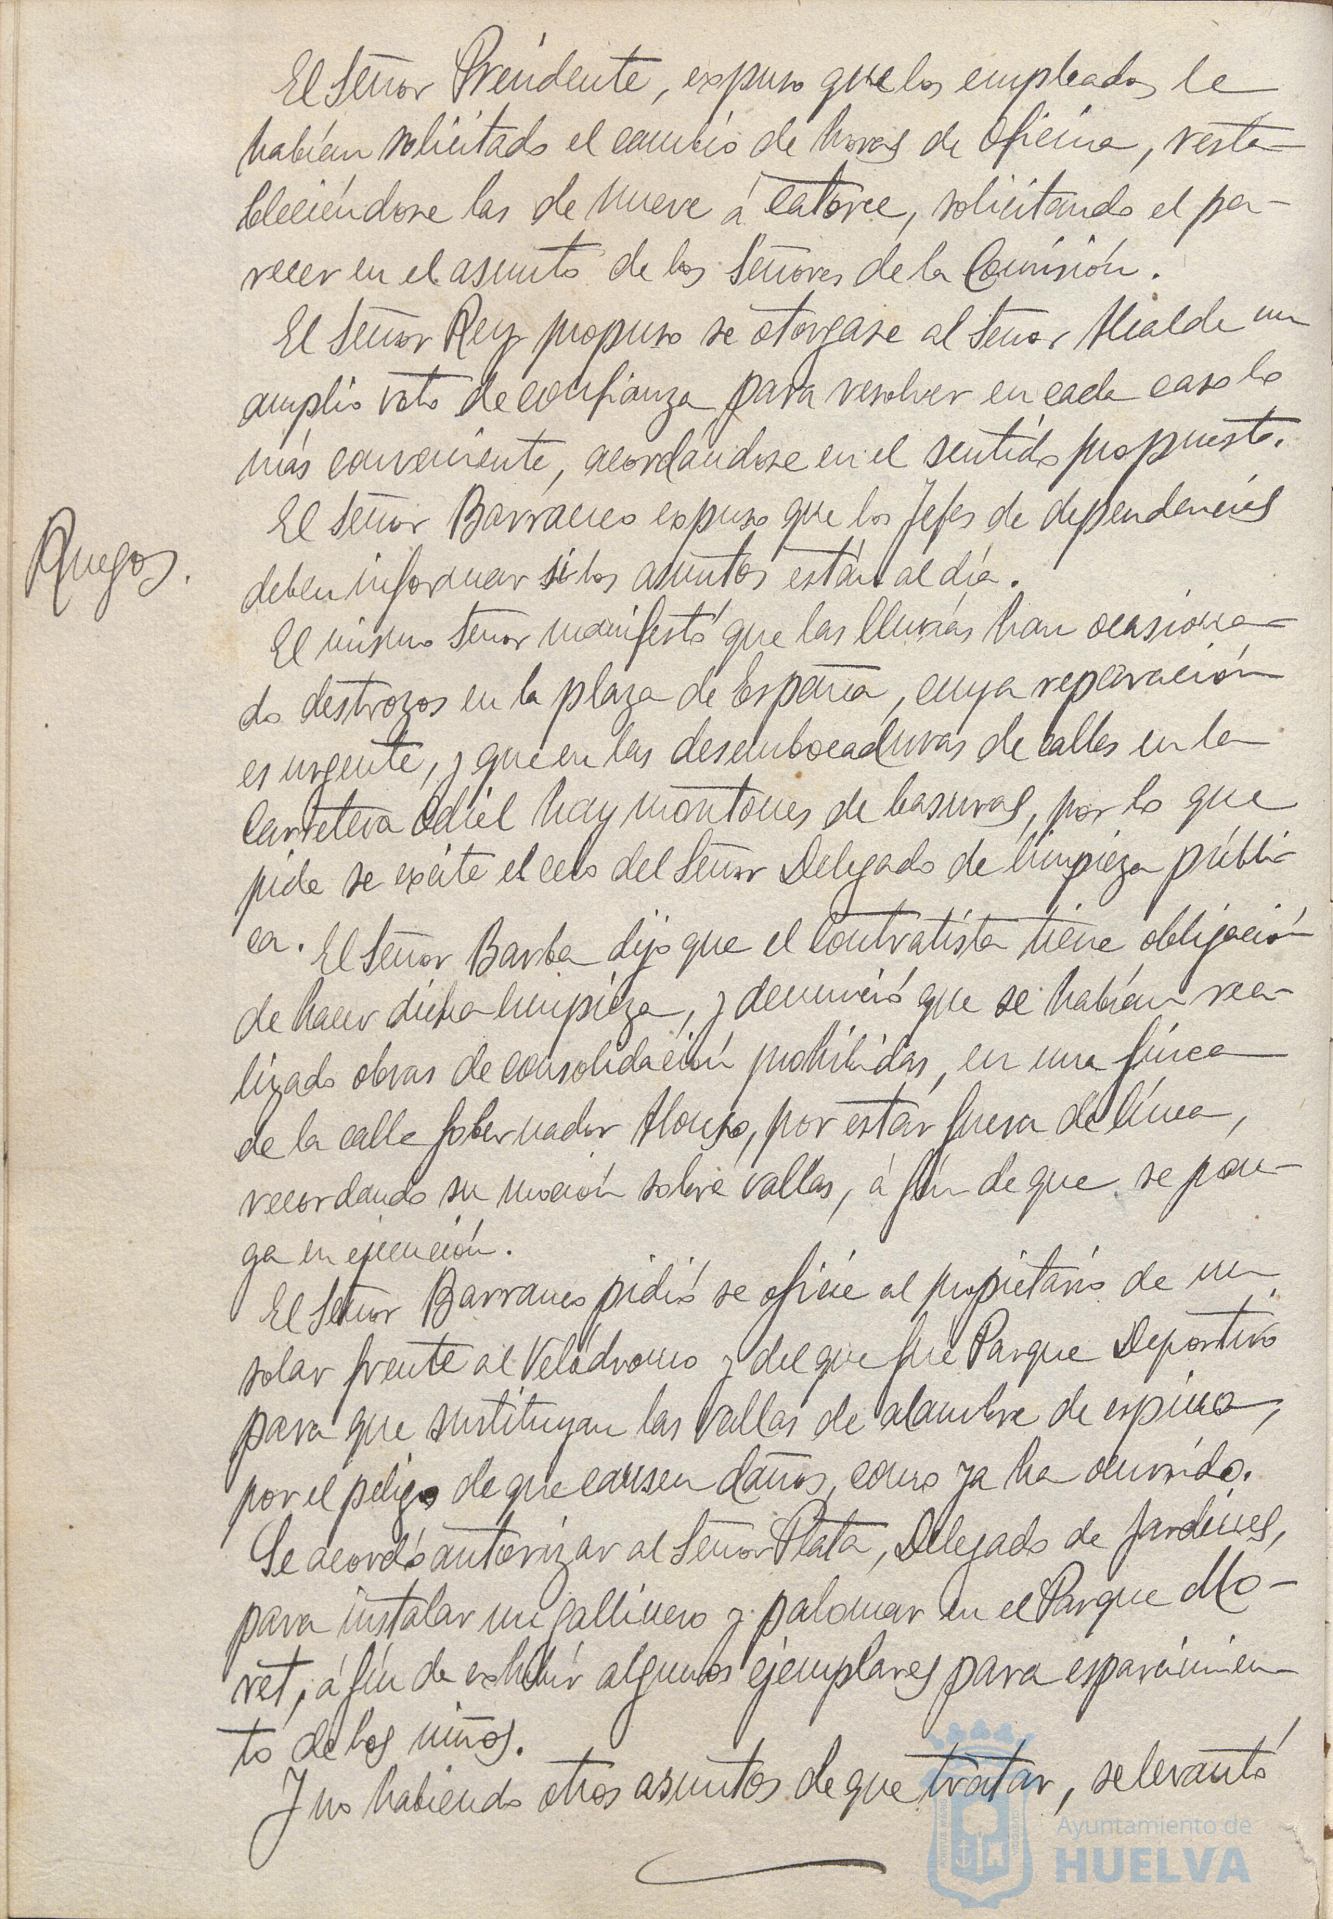 El Señor Presidente, expuso que los empleados le
habían solicitado el cambio de horas de oficina, resta-
bleciéndose las de nueve á catorce, solicitando el pa-
recer en el asunto de los Señores de la Comisión.
El Señor Rey propuso se otorgase al Señor Alcalde un
amplio voto de confianza para resolver en cada caso lo
más conveniente, acordándose en el sentido propuesto.
Ruegos.
El Señor Barranco expuso que los Jefes de dependencias
deben informar si los asuntos están al día.
El mismo Señor manifestó que las lluvias han ocasiona-
do destrozos en la plaza de España, cuya reparación
es urgente, y que en las desembocaduras de calles en la
Carretera Odiel hay montones de basuras, por lo que
pide se excite el celo del Señor Delegado de limpieza públi-
ca. El Señor Barba dijo que el contratista tiene obligación
de hacer dicha limpieza, y denunció que se habían rea-
lizado obras de consolidación prohibidas, en una finca
de la calle Gobernador Alonso, por estar fuera de línea,
recordando su moción sobre vallas, á fín de que se pon-
ga en ejecución.
El Señor Barranco pidió se oficie al propietario de un
solar frente al Velódromo y del que fue Parque Deportivo
para que sustituyan las vallas de alambre de espino,
por el peligro de que causen daños, como ya ha ocurrido.
Se acordó autorizar al Señor Plata, Delegado de Jardines,
para instalar un gallinero y palomar en el Parque Mo-
ret, á fín de exhibir algunos ejemplares para esparcimien-
to de los niños.
Y no habiendo otros asuntos de que tratar, se levantó
Ayuntamiento de
HUELVA